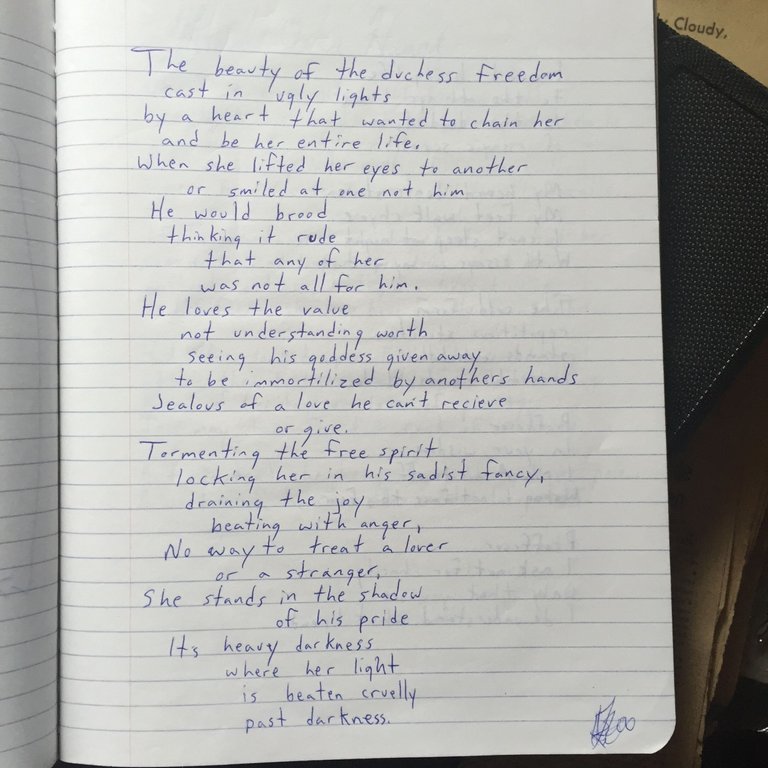 Cloudy,
The beauty of the duchess freedom
cast in ugly lights
by a heart that wanted to chain her
and be her entire life.
When she lifted her eyes to another
or smiled at one not him
He would brood
thinking it rude
that any of her
was not all for him.
He loves the value
not understanding worth
seeing his goddess given away
to be immortilized by anothers hands
Jealous of a love he can't recieve
or give.
Tormenting the free spirit
locking her in his sadist fancy,
draining the joy
beating with anger,
No way to treat a lover
or a stranger,
She stands in the shadow
of his pride
It's heavy darkness
where her light
is beaten cruelly
past darkness.